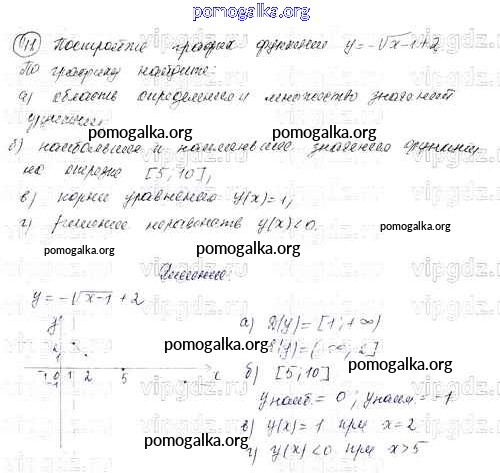 pomogalka.org
411 Постройте график функции y=-√x-1+2
По графику найдите:
а) область определения и множество значений
функции;
pomogalka.org
pomogalka.org
б) наибольшее и наименьшее значение функции
на отрезке [5; 10];
pomogalka.org
в) корни уравнения y(x)=1;
г) решение неравенств y(x)<0.
pomogalka.org
pomogalka.org
Решение:
y=-√x-1+2
y
2
1
-1 0 1 2 5 x
-1
pomogalka.org
а) D(y)=[1;+∞)
E(y)=(-∞; 2]
б) [5; 10]
yнаиб.=0; yнаим.=-1
в) y(x)=1 при x=2
г) y(x)<0 при x>5
pomogalka.org
pomogalka.org
pomogalka.org